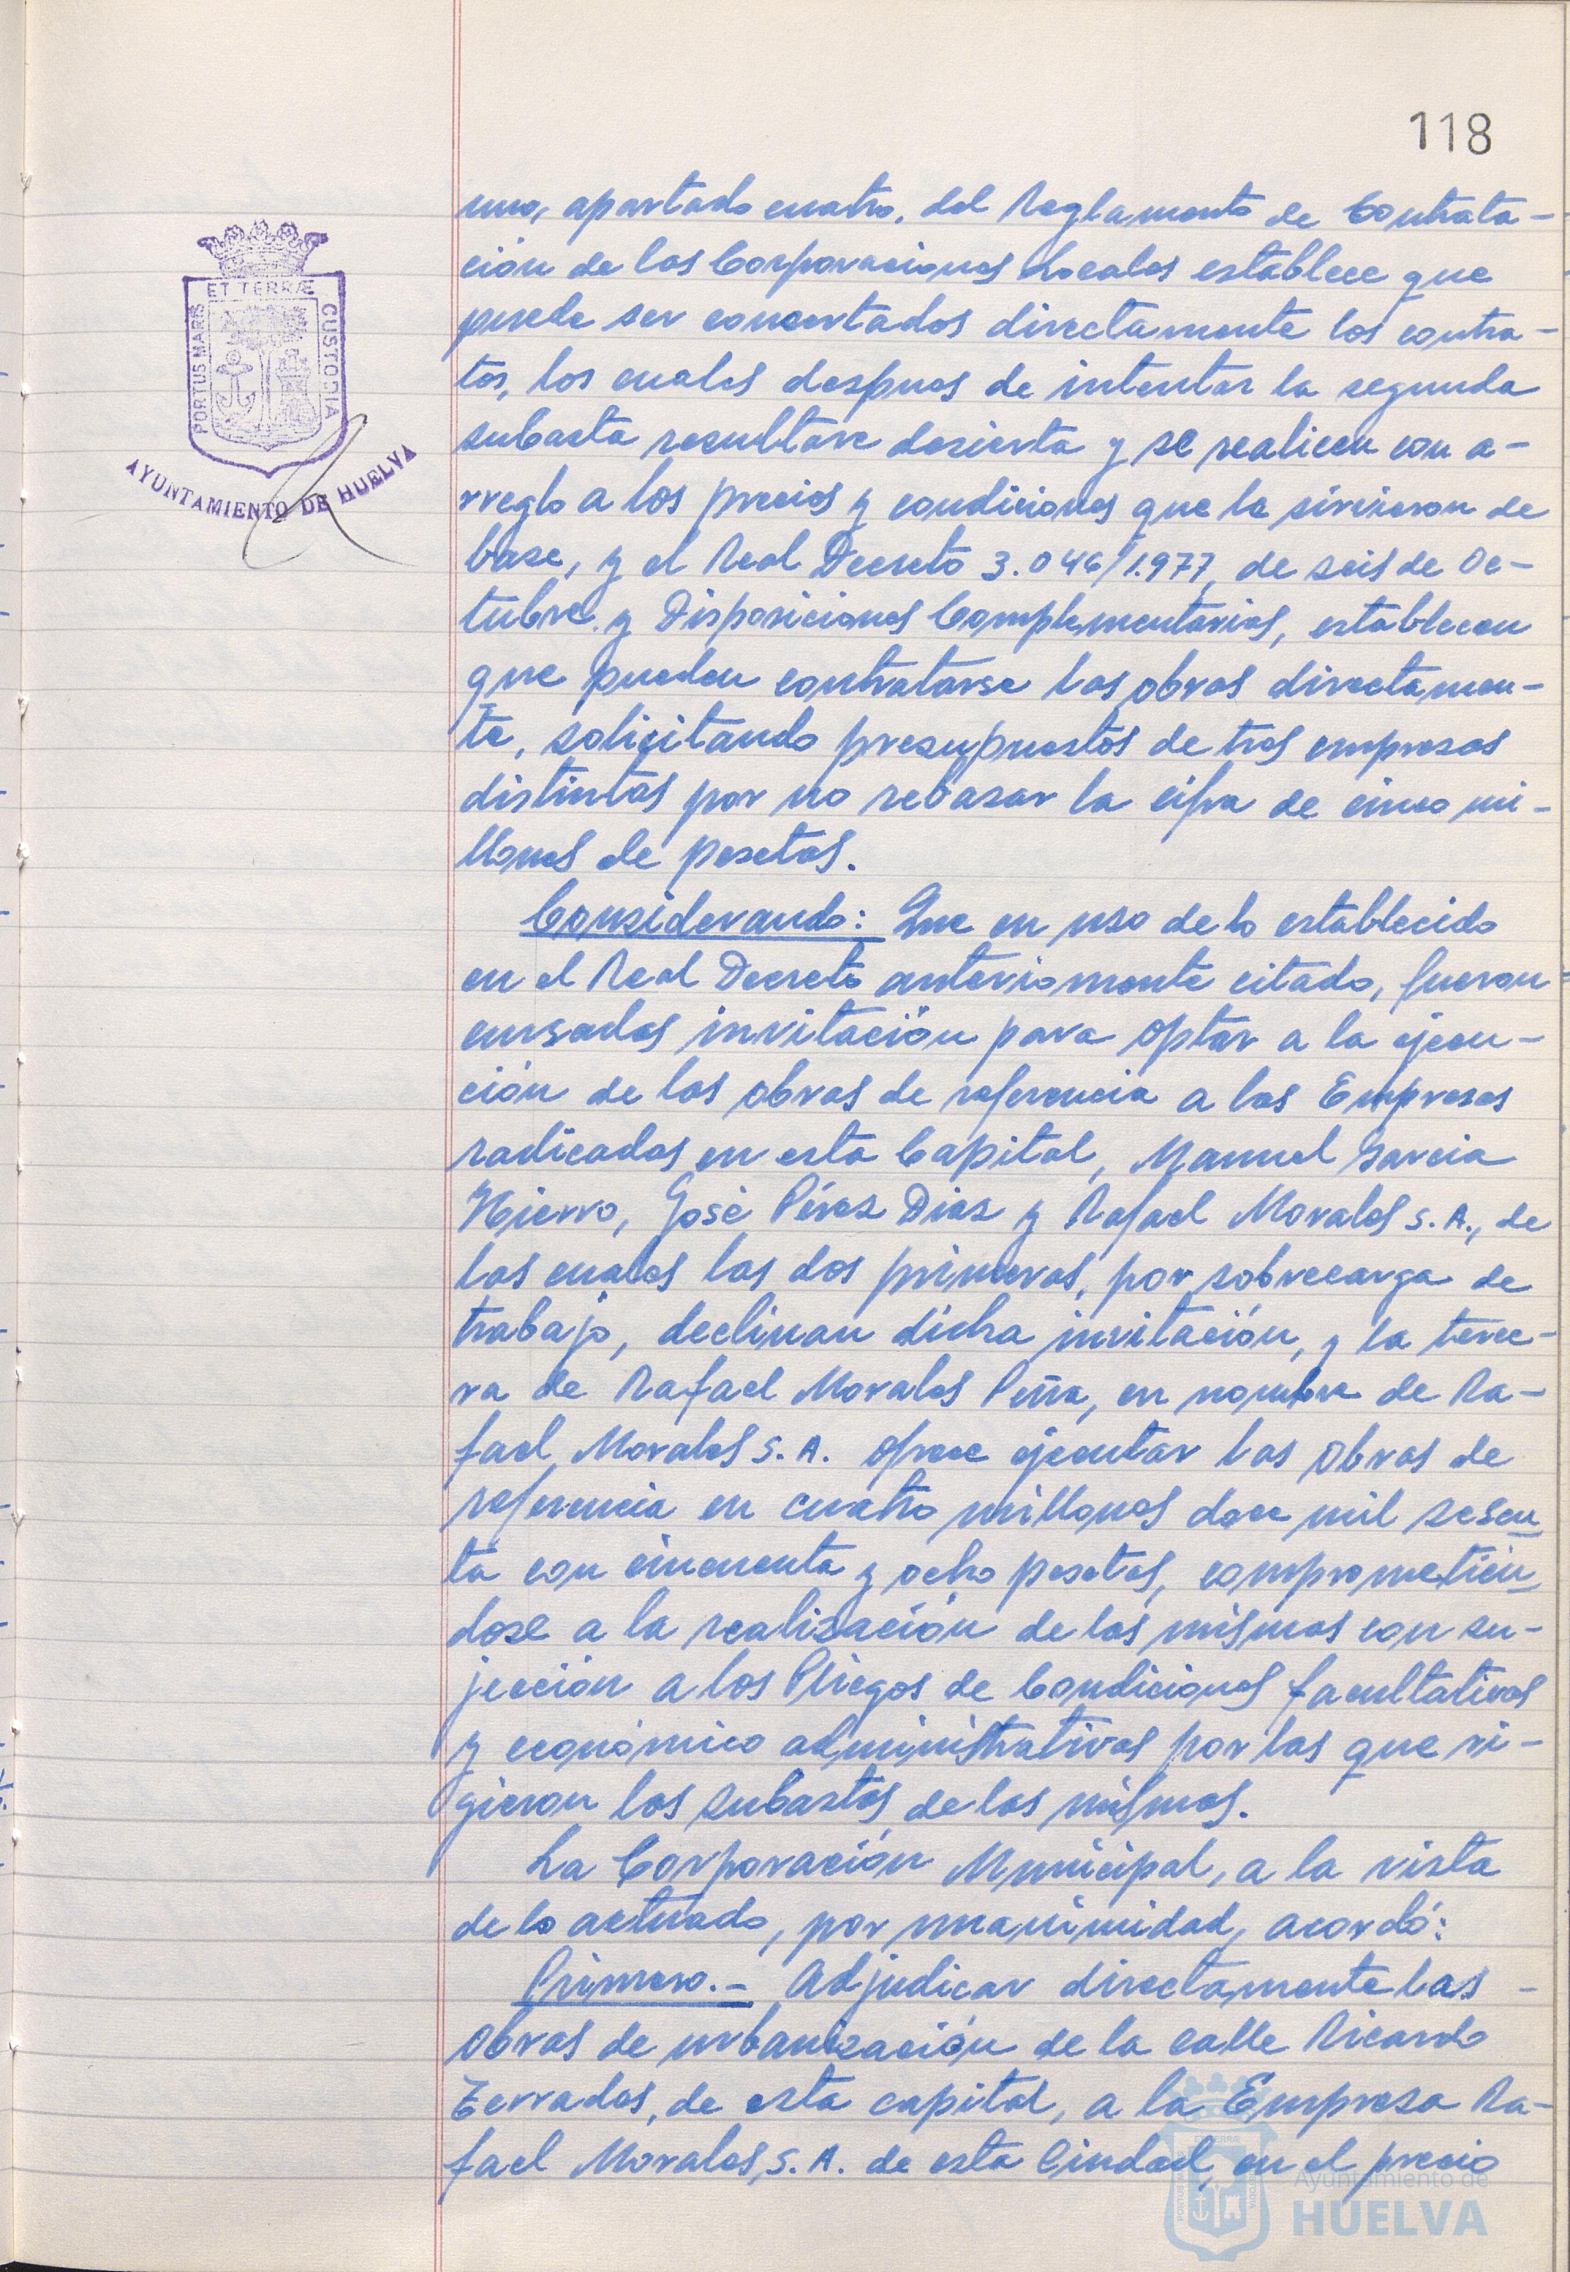 118
uno, apartado cuatro, del Reglamento de Contrata-
ción de las Corporaciones Locales establece que
puede ser concertados directamente los contra-
tos, los cuales despues de intentar la segunda
subasta resultare desierta y se realicen con a-
rreglo a los precios y condiciones que le sirvieron de
base, y el Real Decreto 3.046/1.977, de seis de Oc-
tubre y Disposiciones Complementarias, establecen
que pueden contratarse las obras directamen-
te, solicitando presupuestos de tres empresas
distintas por no rebasar la cifra de cinco mi-
llones de pesetas.
Considerando: Que en uso de lo establecido
en el Real Decreto anteriomente citado, fueron
cursadas invitación para optar a la ejecu-
ción de las obras de referencia a las Empresas
radicadas en esta Capital, Manuel Garcia
Hierro, José Pérez Diaz y Rafael Morales S.A., de
las cuales las dos primeras, por sobrecarga de
trabajo, declinan dicha invitación, y la terce-
ra de Rafael Morales Peña, en nombre de Ra-
fael Morales S.A. ofrece ejecutar las obras de
referencia en cuatro millones doce mil sesen
ta con cincuenta y ocho pesetas, comprometién
dose a la realización de las mismas con su-
jección a los Pliegos de Condiciones facultativas
y económico administrativas por las que ri-
gieron las subastas de las mismas.
La Corporación Municipal, a la vista
de lo actuado, por unanimidad, acordó:
Primero.- Adjudicar directamente las -
obras de urbanización de la calle Ricardo
Terrades, de esta capital, a la Empresa Ra-
fael Morales, S.A. de esta Ciudad, en el precio
PORTUS MARIS
ET TERRÆ
CUSTODIA
AYUNTAMIENTO DE HUELVA
Ayuntamiento de
HUELVA